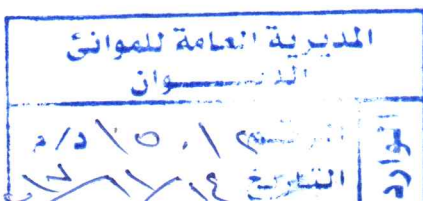 المديرية العامة للموانئ
الديـــوان
الرقم ١٥٠١ د/م
التاريخ
الوارد